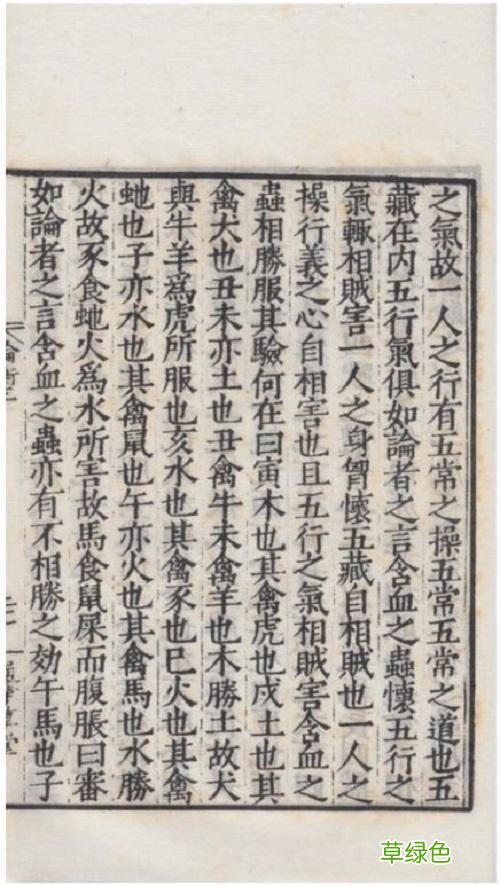 之氣故一人之行有五常之操五常五常之道也五
藏在内五行氣俱如論者之言含血之蟲懷五行之
氣輒相賊害一人之身胷懷五藏自相賊也一人之
操行義之心自相害也且五行之氣相賊害含血之
蟲相勝服其驗何在曰寅木也其禽虎也戍土也其
禽犬也丑未亦土也丑禽牛未禽羊也木勝土故犬
與牛羊爲虎所服也亥水也其禽豕也巳火也其禽
虵也子亦水也其禽鼠也午亦火也其禽馬也水勝
火故豕食虵火爲水所害故馬食鼠屎而腹脹曰審
如論者之言含血之蟲亦有不相勝之効午馬也子
草绿色